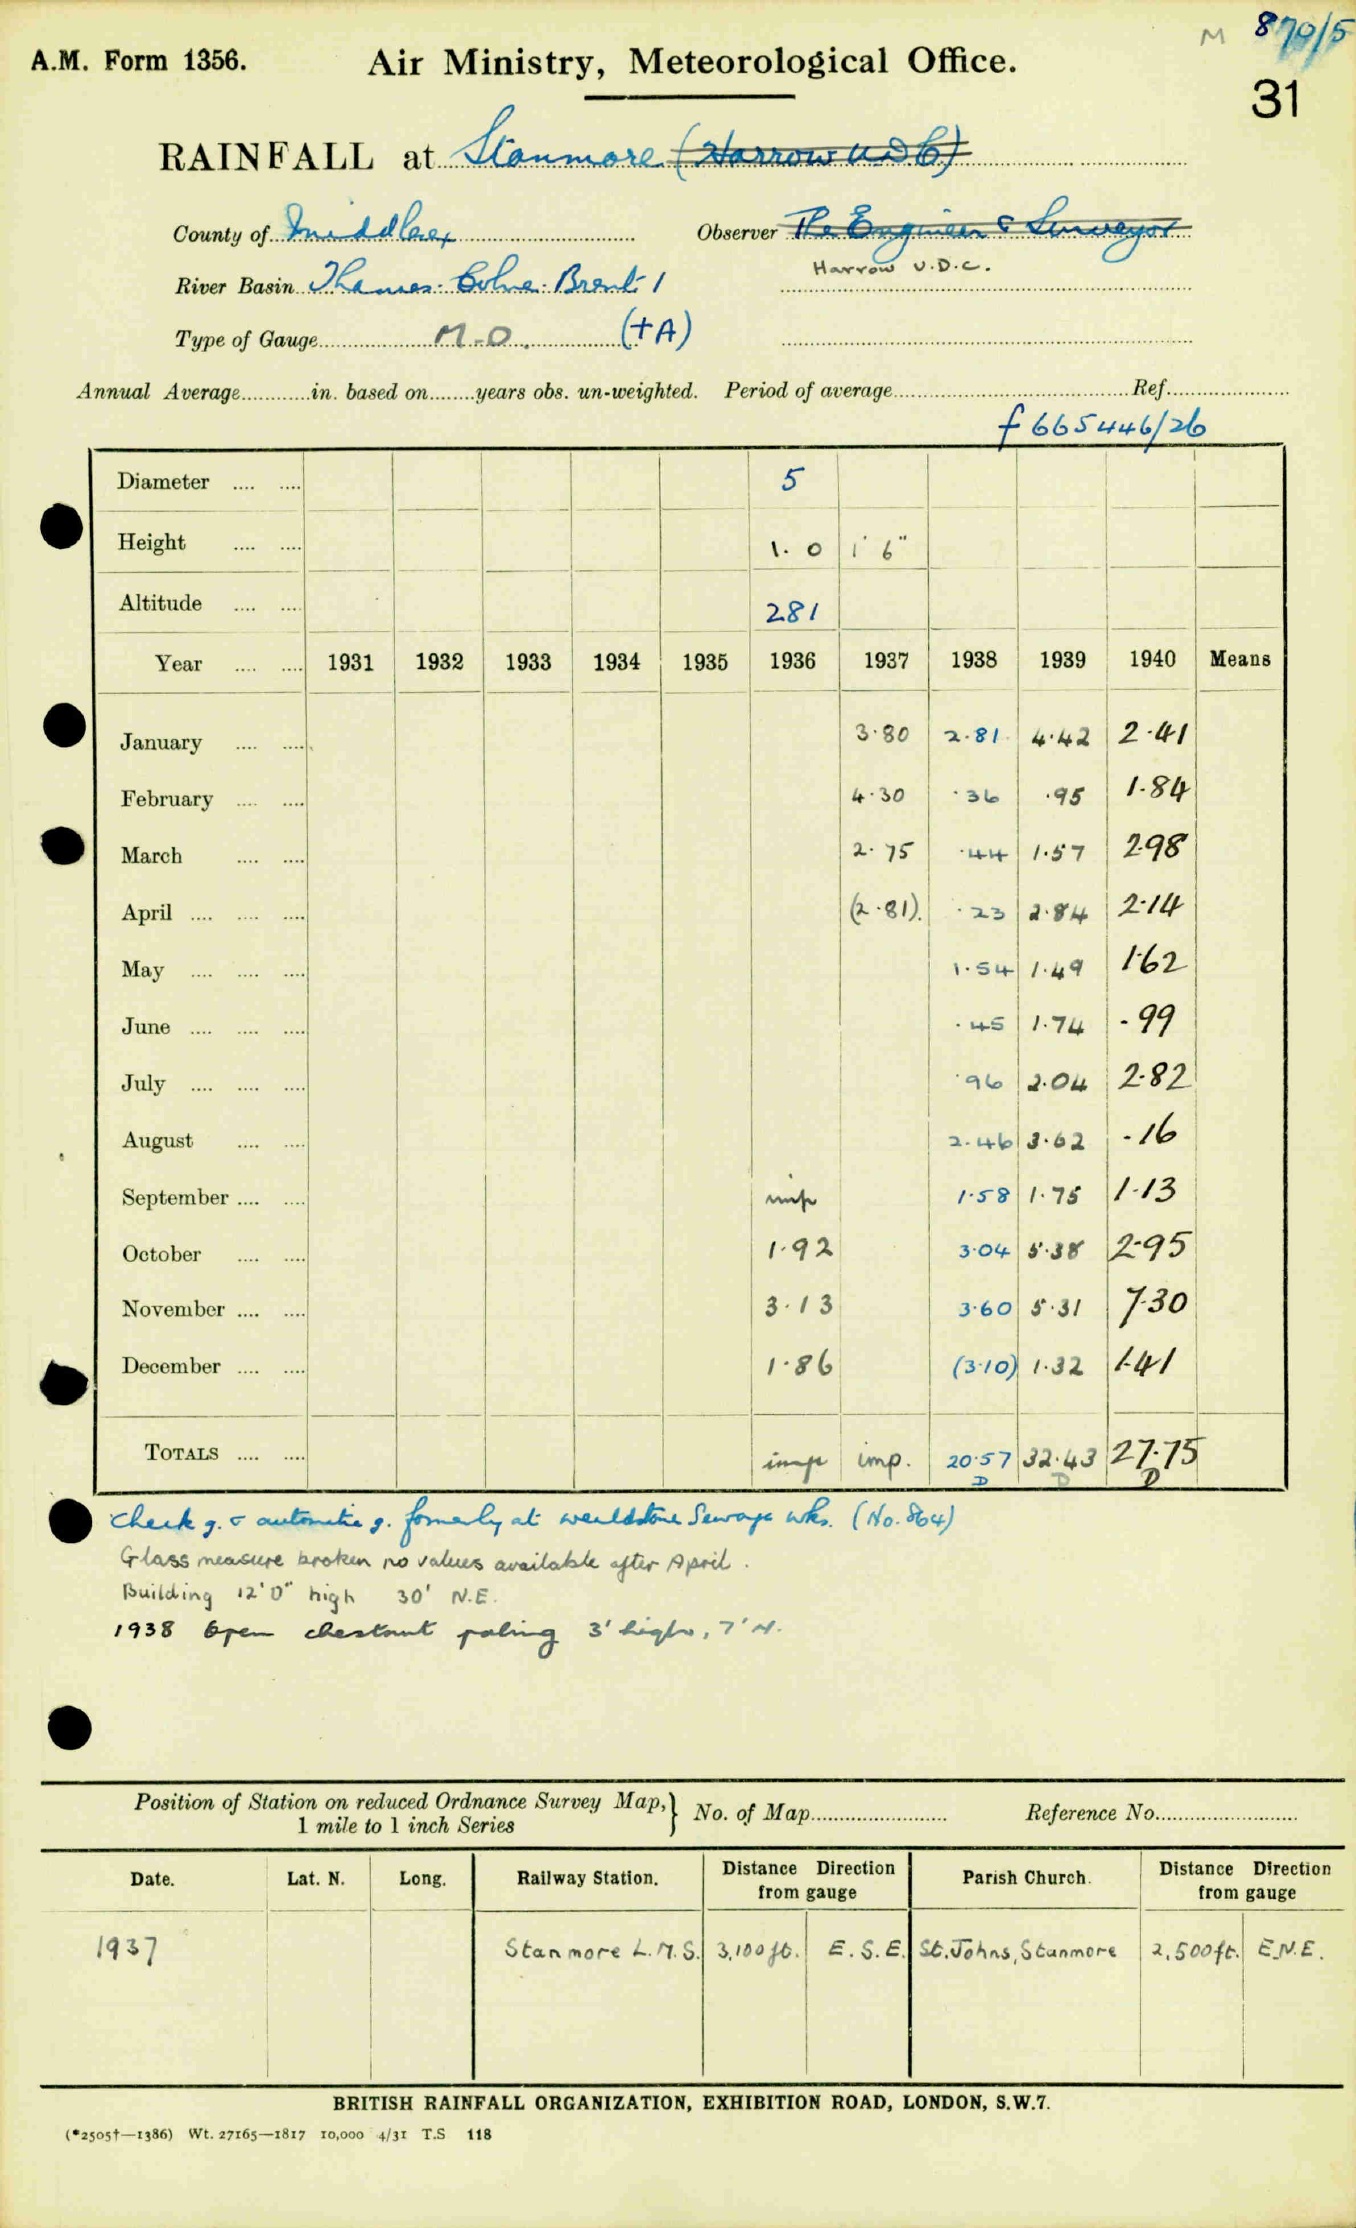 M 870/5
A.M. Form 1356. Air Ministry, Meteorological Office.
31
RAINFALL at Stanmore (Harrow U D C)
County of Middlesex Observer The Engineer & Surveyor
Harrow U.D.C.
River Basin Thames. Colne. Brent. 1
Type of Gauge M.O. (+A)
Annual Average............in. based on........years obs. un-weighted. Period of average............ Ref............
f 665446/26
Diameter .... .... 5
Height .... .... 1. 0 1' 6"
Altitude .... .... 281
Year .... .... 1931 1932 1933 1934 1935 1936 1937 1938 1939 1940 Means
January .... .... 3.80 2.81 4.42 2.41
February .... .... 4.30 .36 .95 1.84
March .... .... 2.75 .44 1.57 2.98
April .... .... .... (2.81). .23 2.84 2.14
May .... .... .... 1.54 1.49 1.62
June .... .... .... .45 1.74 .99
July .... .... .... .96 2.04 2.82
August .... .... 2.46 3.62 .16
September .... .... imp 1.58 1.75 1.13
October .... .... 1.92 3.04 5.38 2.95
November .... .... 3.13 3.60 5.31 7.30
December .... .... 1.86 (3.10) 1.32 1.41
TOTALS .... .... imp imp. 20.57 32.43 27.75
D D D
Check g. & automatic g. formerly at Wealdstone Sewage Wks. (No. 864)
Glass measure broken no values available after April.
Building 12'0" high 30' N.E.
1938 Open chestnut paling 3' high, 7' N.
Position of Station on reduced Ordnance Survey Map, } No. of Map............ Reference No............
1 mile to 1 inch Series
Date. Lat. N. Long. Railway Station. Distance Direction from gauge Parish Church. Distance Direction from gauge
1937 Stanmore L.M.S. 3,100 ft. E.S.E. St. Johns, Stanmore 2,500 ft. E.N.E.
BRITISH RAINFALL ORGANIZATION, EXHIBITION ROAD, LONDON, S.W.7.
(*2505†—1386) Wt. 27165—1817 10,000 4/31 T.S 118